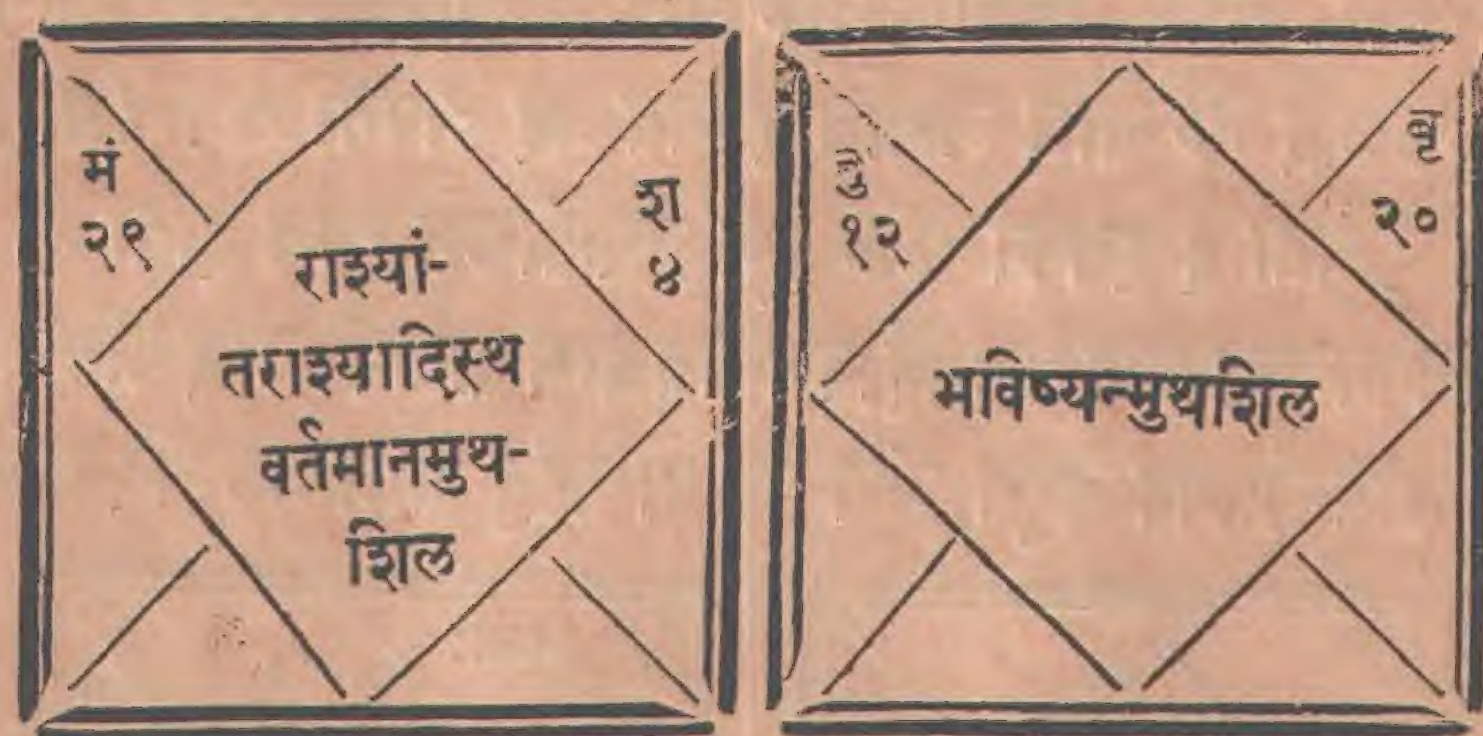 मं
२९
श
४
राश्यां-
तराश्यादिस्थ
वर्तमानमुथ-
शिल
१२
२०
भविष्यन्मुथशिल